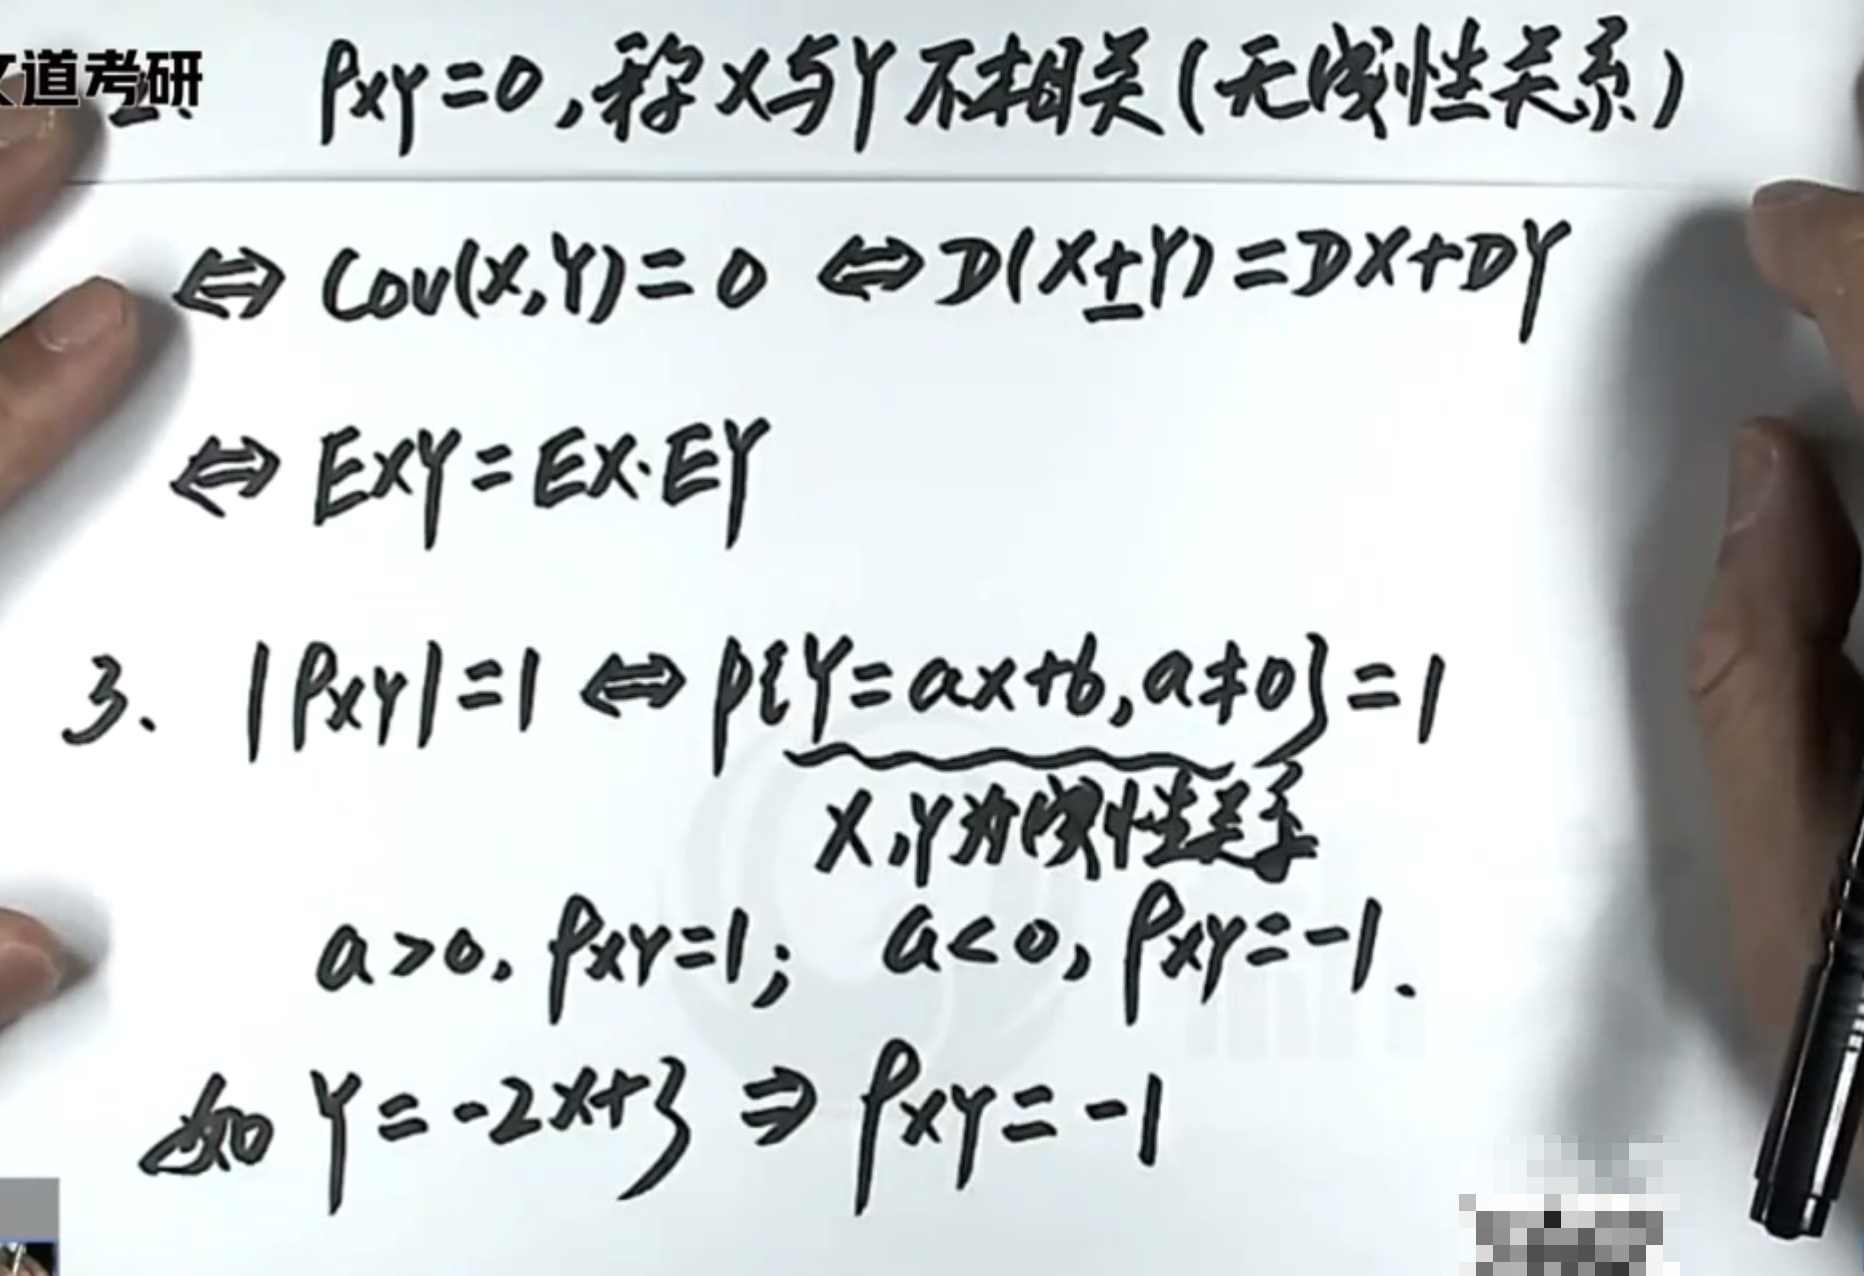 文道考研
ρXY=0,称X与Y不相关(无线性关系)
⇔ Cov(X,Y)=0 ⇔ D(X±Y)=DX+DY
⇔ EXY=EX·EY
3. |ρXY|=1 ⇔ P{Y=aX+b,a≠0}=1
X,Y为线性关系
a>0, ρXY=1; a<0, ρXY=-1.
如 Y=-2X+3 ⇒ ρXY=-1